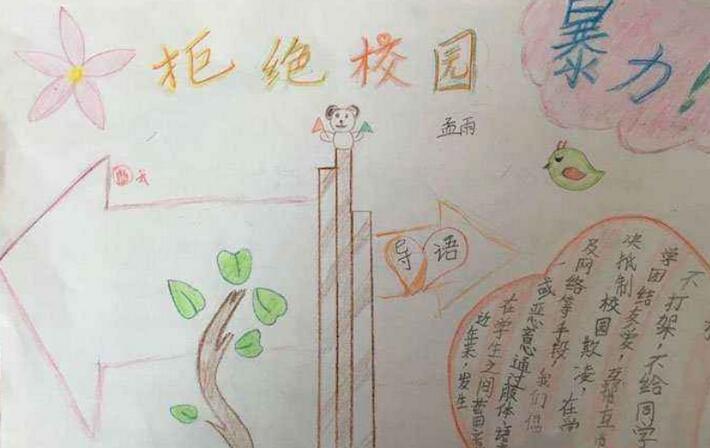 拒绝校园
暴力!
孟雨
导语
近年来,发生
在学生之间蓄意
或恶意通过服体语
及网络等手段,我们倡
决抵制校园欺凌,在学
学团结友爱,互帮互
不打架,不给同学
不